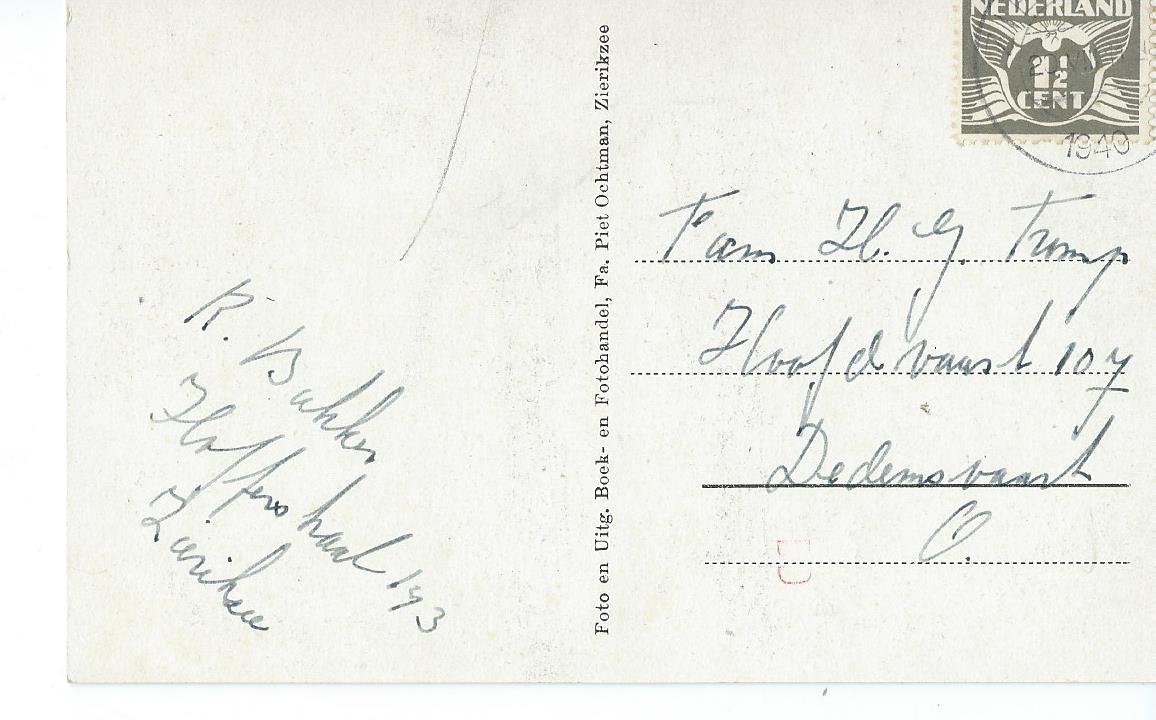 NEDERLAND
1½
CENT
1940
Foto en Uitg. Boek- en Fotohandel, Fa. Piet Ochtman, Zierikzee
Fam H. G. Tromp
Hoofdvaart 107
Dedemsvaart
O.
K. Bakker
Zierikzee